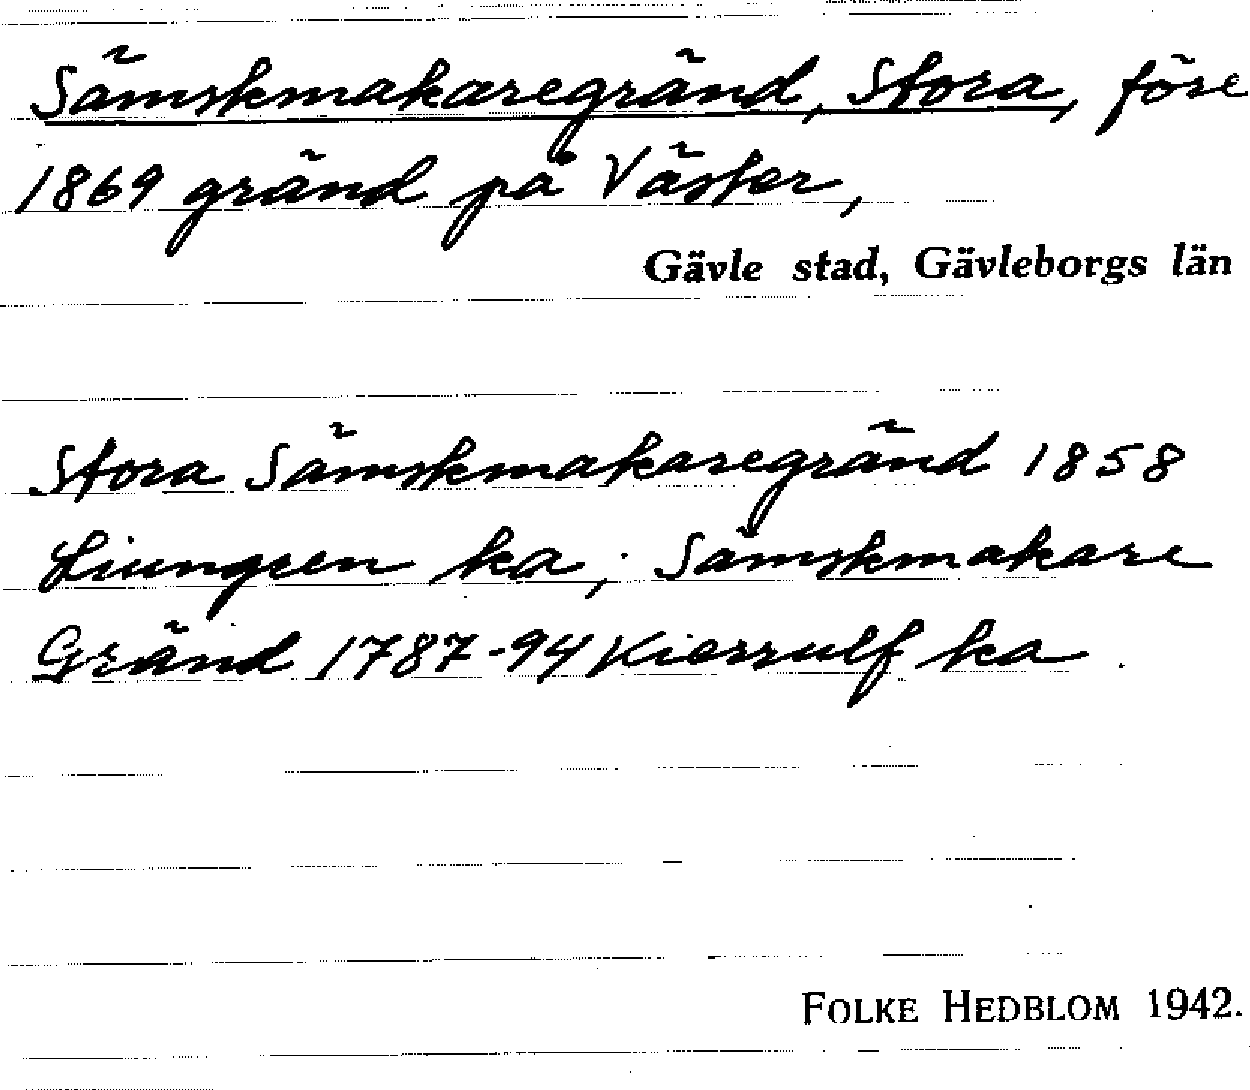 Sämskmakaregränd, Stora, före
1869 gränd på Väster,
Gävle stad, Gävleborgs län
Stora Sämskmakaregränd 1858
Liungren ka; Sämskmakare
Gränd 1787-94 Kierrulf ka.
FOLKE HEDBLOM 1942.